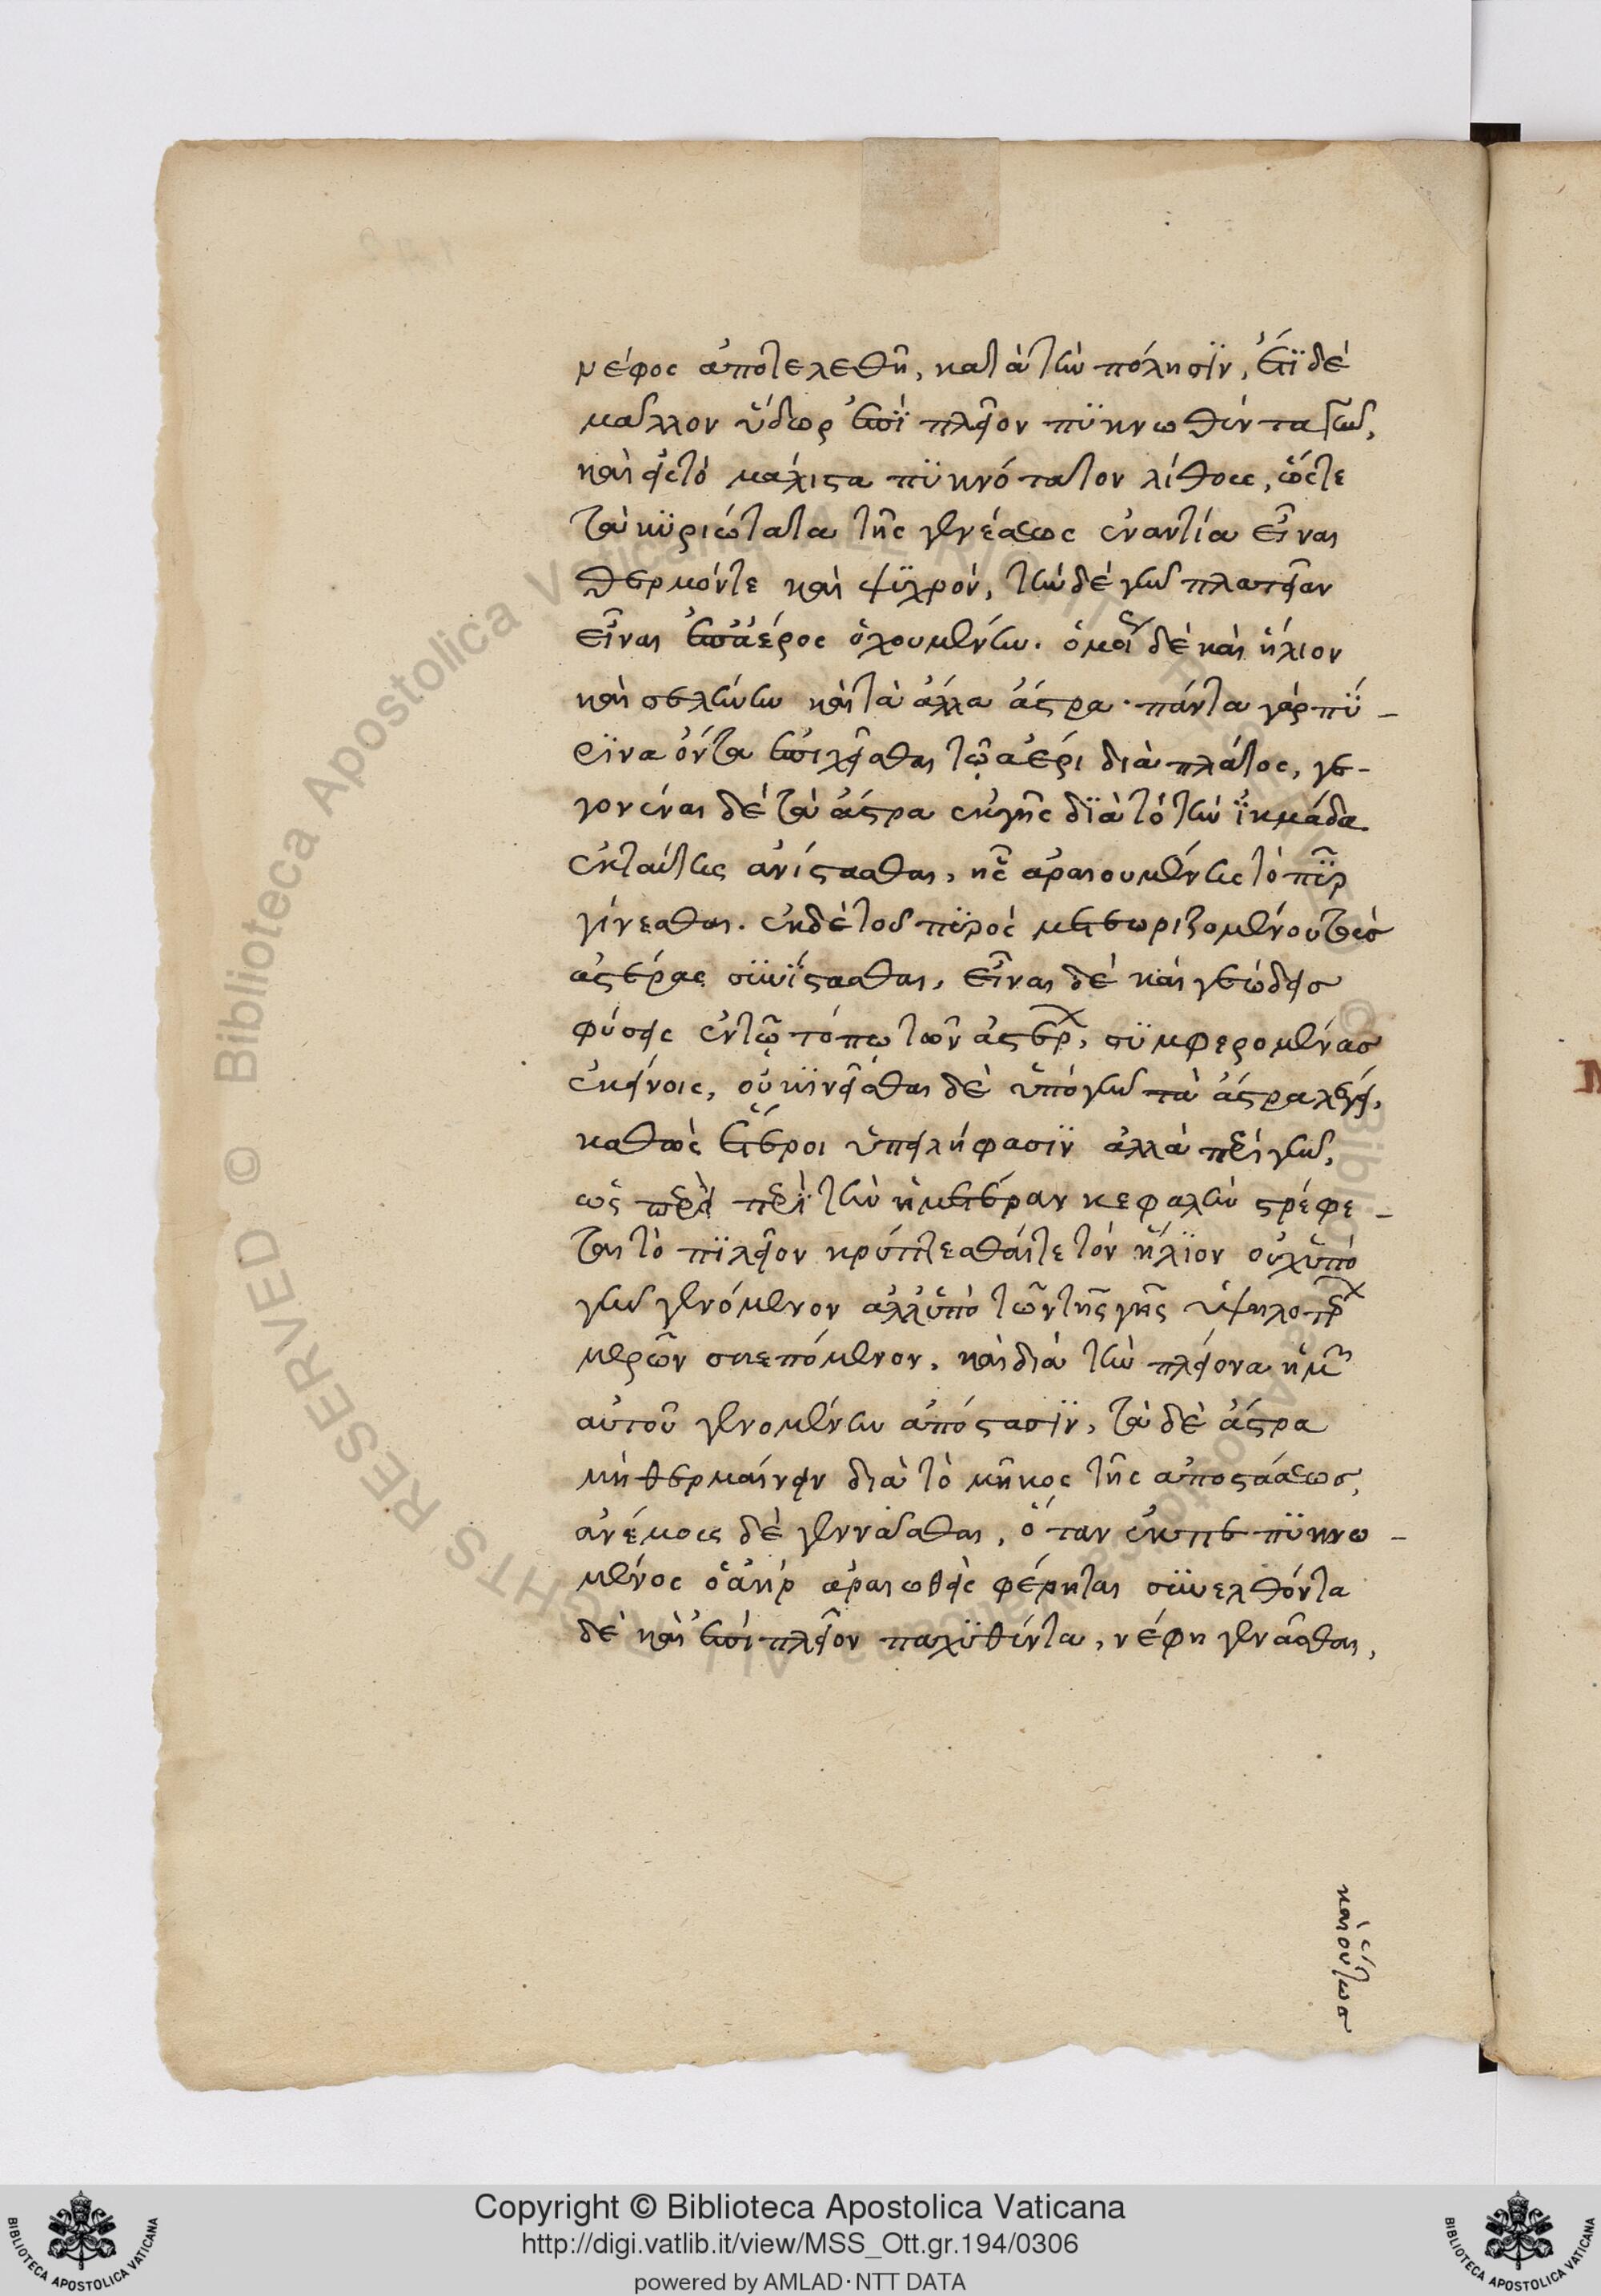 νέφος ἀποτελεθῆ, κατὰ τὴν πόλησϊν, ἔτϊ δὲ
μᾶλλον ὕδωρ ἐπὶ πλεῖον πϋκνωθέντα γῆν,
καὶ εἰς τὸ μάλιστα πϋκνότατον λίθους, ὥστε
τὰ κϋριώτατα τῆς γενέσεως ἐναντία εἶναι
θερμόντε καὶ ψϋχρόν, τὴν δὲ γῆν πλατεῖαν
εἶναι ἐπ' ἀέρος ὀχουμένην. ὁμοί δὲ καὶ ἥλιον
καὶ σελήνην καὶ τὰ ἄλλα ἄστρα· πάντα γὰρ πϋ-
ρϊνα ὄντα ἐποιχεῖσθαι τῷ ἀέρι διὰ πλάτος, γε-
γονέναι δὲ τὰ ἄστρα ἐκ γῆς δϊὰ τὸ τὴν ἰκμάδα
ἐκ ταύτης ἀνίστασθαι, ἧς ἀραιουμένης τὸ πῦρ
γίνεσθαι. ἐκ δὲ τοῦ πϋρὸς μετεωριζομένου τοὺς
ἀστέρας σϋνίστασθαι, εἶναι δὲ καὶ γεώδεις
φύσεις ἐν τῷ τόπῳ τῶν ἀστέρ, σϋμφερομένας
ἐκείνοις, οὐ κϊνεῖσθαι δὲ ὑπὸ γῆν τὰ ἄστρα λέγει,
καθὼς ἕτεροι ὑπειλήφασϊν ἀλλὰ περὶ γῆν,
ὡς περεὶ περὶ τὴν ἡμετέραν κεφαλὴν στρέφε-
ται τὸ πϊλεῖον κρύπτεσθαί τε τὸν ἥλϊον οὐχ ὑπὸ
γῆν γενόμενον ἀλλ' ὑπὸ τῶν τῆς γῆς ὑψηλοτέρ
μερῶν σκεπόμενον, καὶ διὰ τὴν πλείονα ἡμ
αὐτοῦ γενομένην ἀπόστασϊν, τὰ δὲ ἄστρα
μὴ θερμαίνειν διὰ τὸ μῆκος τῆς ἀποστάσεως,
ἀνέμους δὲ γεννᾶσθαι, ὅταν ἐκπε πϋκνω-
μένος ὁ ἀὴρ ἀραιωθεὶς φέρηται σϋνελθόντα
δὲ καὶ ἐπὶ πλεῖον παχϋθέντα, νέφη γεννᾶσθαι,
καὶ οὕτως
Copyright © Biblioteca Apostolica Vaticana
http://digi.vatlib.it/view/MSS_Ott.gr.194/0306
powered by AMLAD·NTT DATA